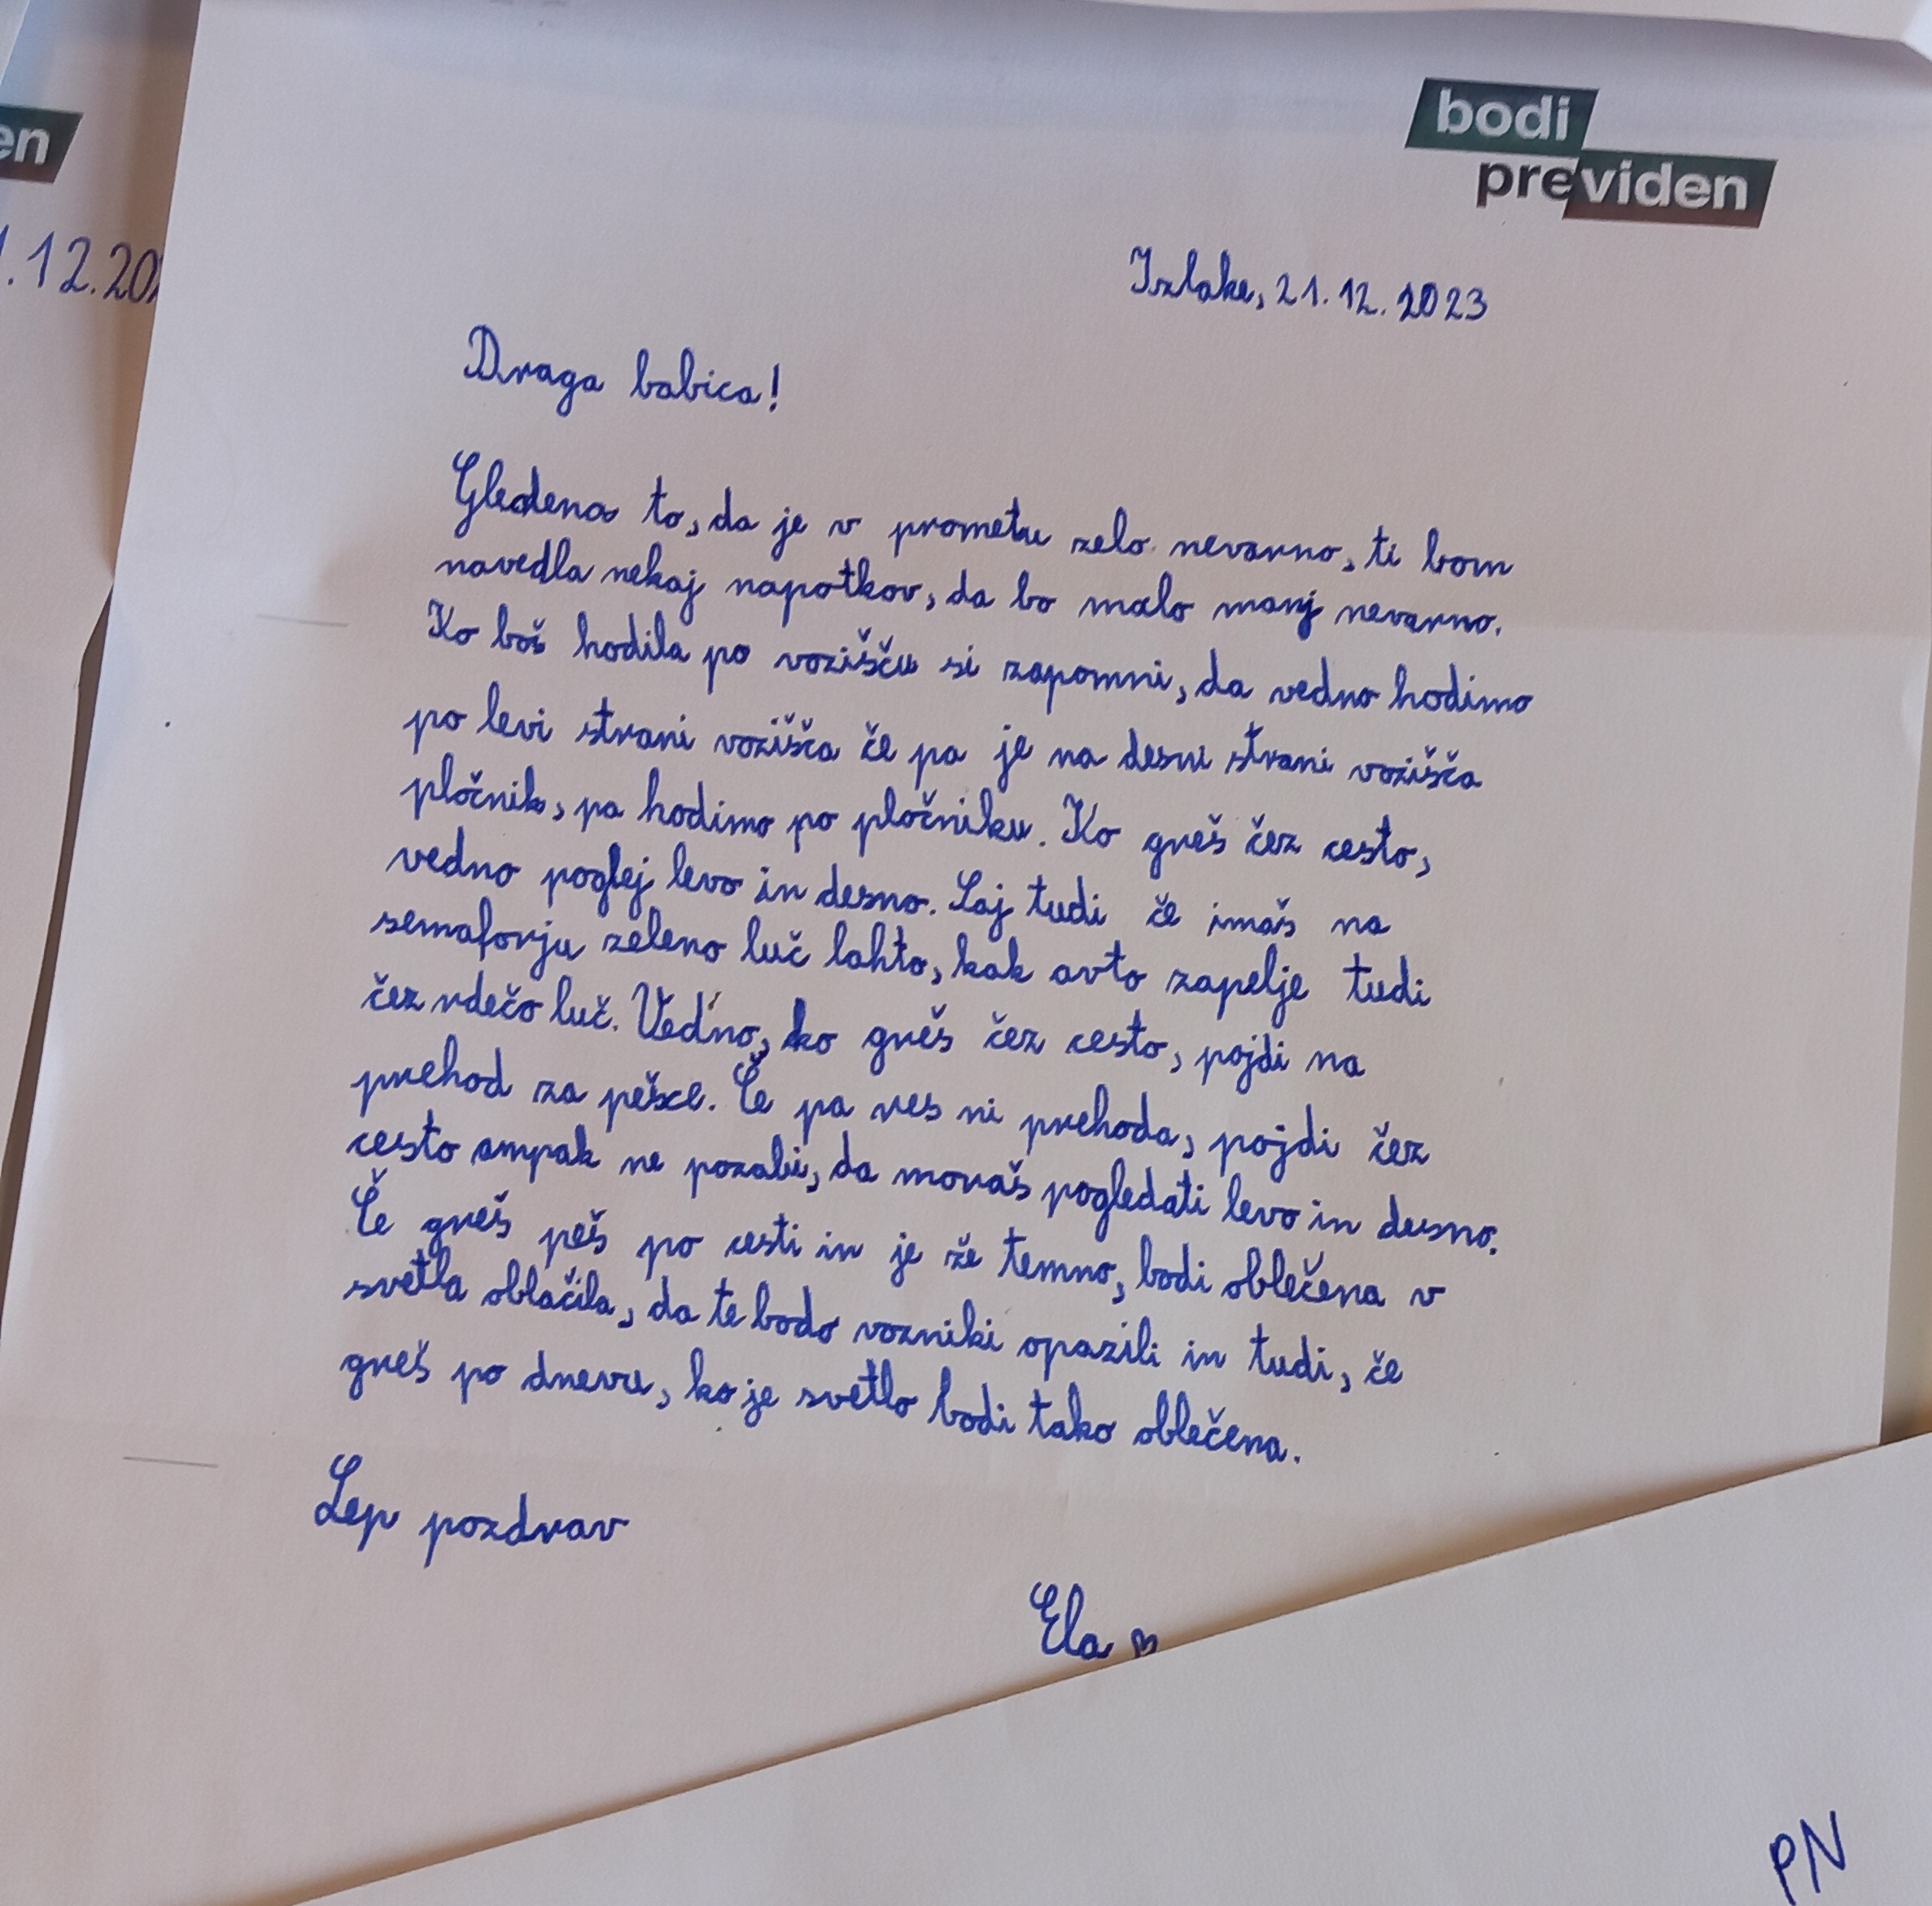 bodi
previden
en
.12.20
Izlake, 21.12.2023
Draga babica!
Gledena to, da je v prometu zelo nevarno, ti bom
navedla nekaj napotkov, da bo malo manj nevarno.
Ko boš hodila po vozišču si zapomni, da vedno hodimo
po levi strani vozišča če pa je na desni strani vozišča
pločnik, pa hodimo po pločniku. Ko greš čez cesto,
vedno poglej levo in desno. Saj tudi če imaš na
semaforju zeleno luč lahto, kak avto zapelje tudi
čez rdečo luč. Vedno, ko greš čez cesto, pojdi na
prehod za pešce. Če pa res ni prehoda, pojdi čez
cesto ampak ne pozabi, da moraš pogledati levo in desno.
Če greš peš po cesti in je že temno, bodi oblečena v
svetla oblačila, da te bodo vozniki opazili in tudi, če
greš po dnevu, ko je svetlo bodi tako oblečena.
Lep pozdrav
Ela
PN